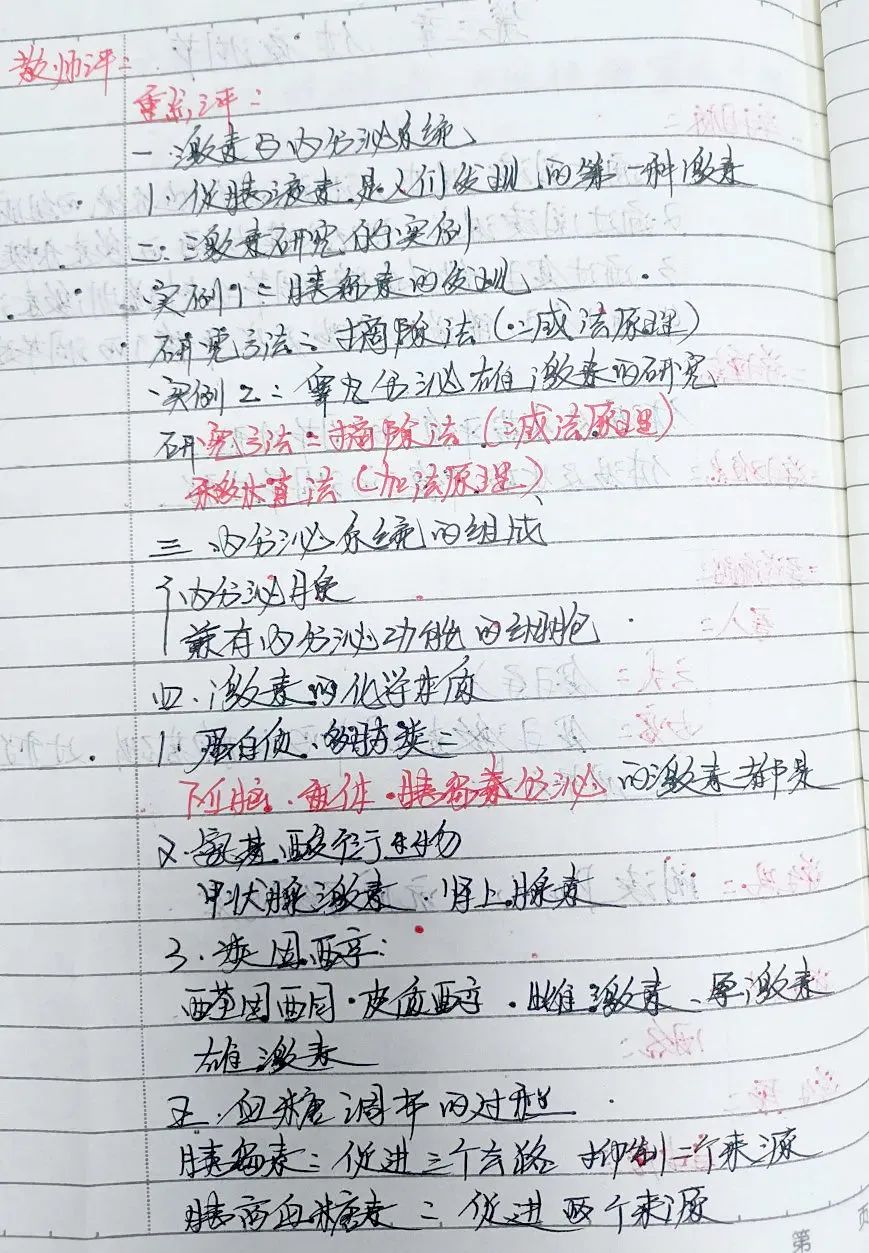 教师评:
重点评:
一.激素与内分泌系统
1.促胰液素.是人们发现的第一种激素
二.激素研究的实例
实例1:胰岛素的发现
研究方法:摘除法(减法原理)
实例2:睾丸分泌雄激素的研究
研究方法:摘除法(减法原理)
移植法(加法原理)
三.内分泌系统的组成
内分泌腺
兼有内分泌功能的细胞
四.激素的化学本质
1.蛋白质.多肽类:
下丘脑.垂体.胰岛素分泌的激素都是
2.氨基酸衍生物
甲状腺激素.肾上腺素
3.类固醇:
醛固酮.皮质醇.雌激素、孕激素
雄激素
五.血糖调节的过程
胰岛素:促进三个去路 抑制二个来源
胰高血糖素:促进两个来源
第 页